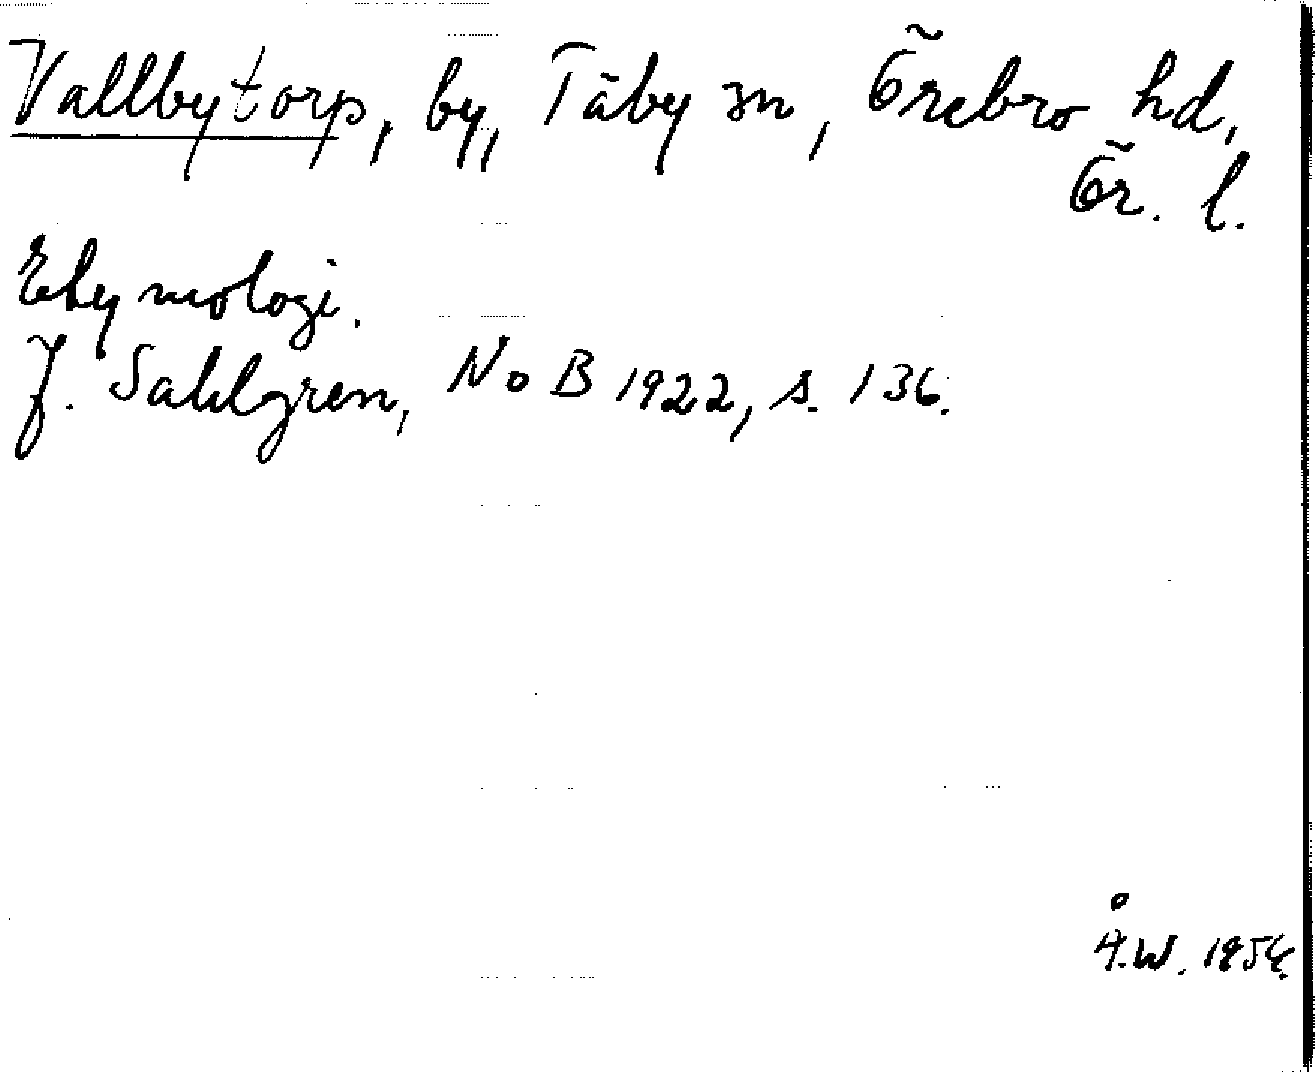 Vallbytorp, by, Täby sn, Örebro hd,
Ör. l.
Etymologi.
J. Sahlgren, NoB 1922, s. 136.
Å.W. 1954.